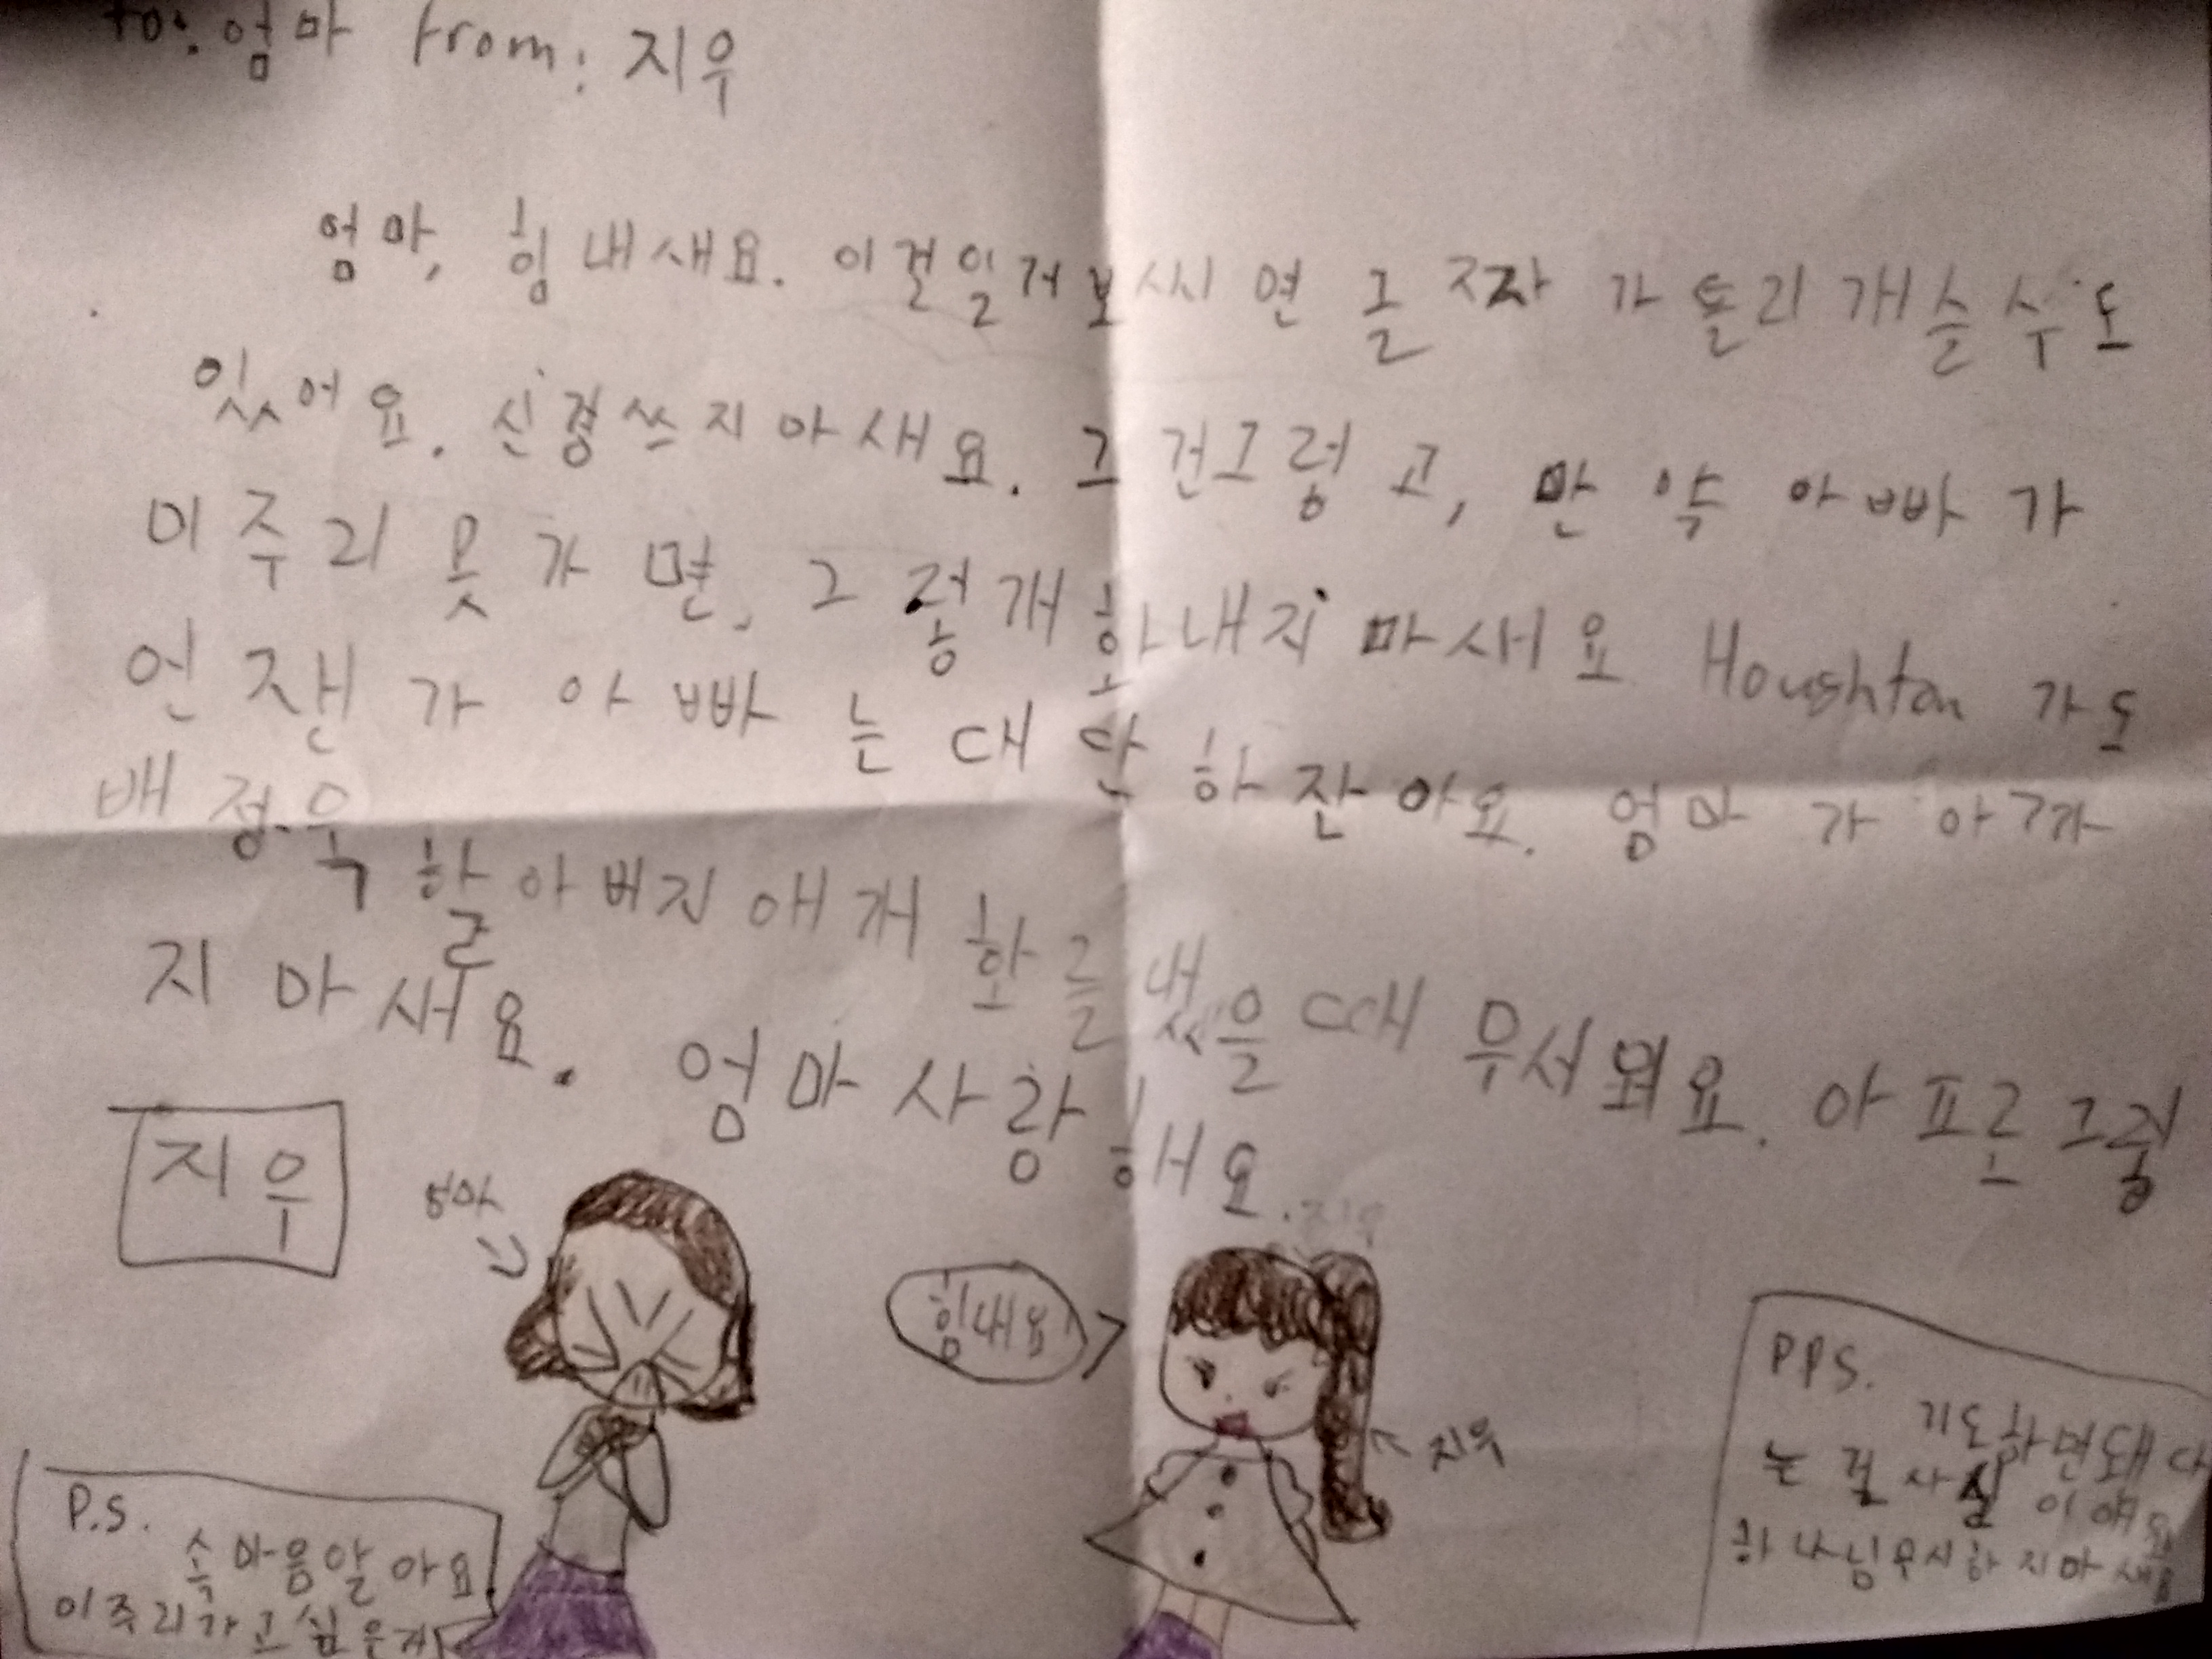 to: 엄마 from: 지우
엄마, 힘내새요. 이걸일거보씨면 글짜가 톨리개슬수도
있어요. 신경쓰지마새요. 그건그렁고, 만약 아빠가
미주리 못가면, 그렁개 화내지 마세요 Houshton 가도
언잰가 아빠는 대단하잔아요. 엄마가 아까
배정욱 할아버지애개 화를냈을때 무서워요. 아프로 그렇
지마세요. 엄마 사랑해요.
지우
엄마
힘내요!
지우
P.S.
속마음알아요
미주리가고싶은거
PPS.
기도하면돼다
는 걸 사실이얘요
하나님무시하지마새요